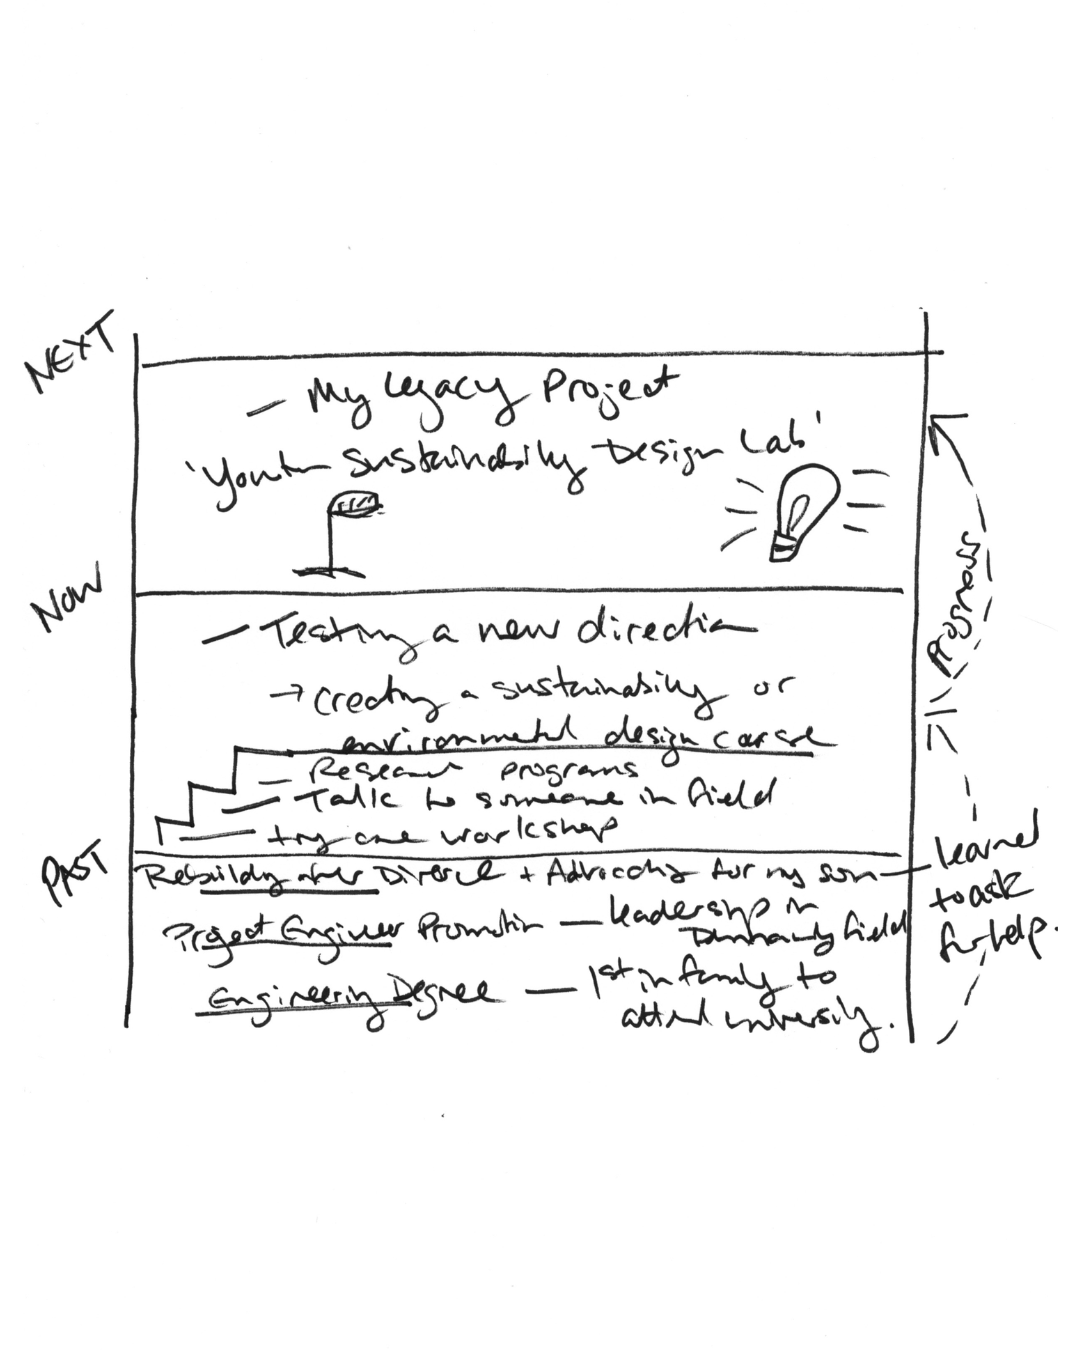 NEXT
- My legacy Project
'Youth Sustainability Design Lab'
NOW
- Testing a new direction
→ Creating a sustainability or
environmental design course
- Research programs
- Talk to someone in field
- try one workshop
PAST
Rebuilding after Divorce + Advocating for my son - learned
to ask
for help.
Project Engineer Promotion - leadership in
field
Engineering Degree - 1st in family to
attend university.
Progress